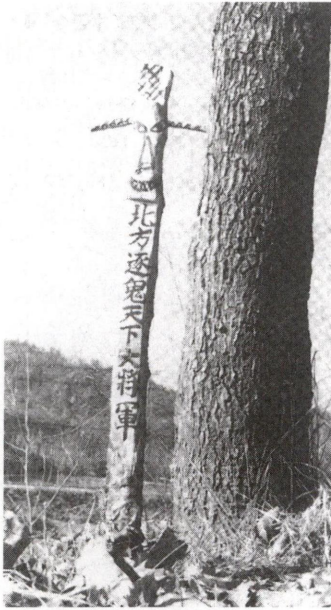 北方逐鬼天下大將軍